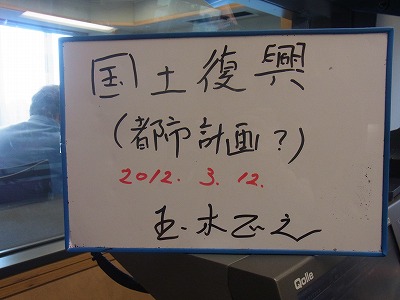 国土復興
(都市計画?)
2012. 3. 12.
玉木正之
Qolle